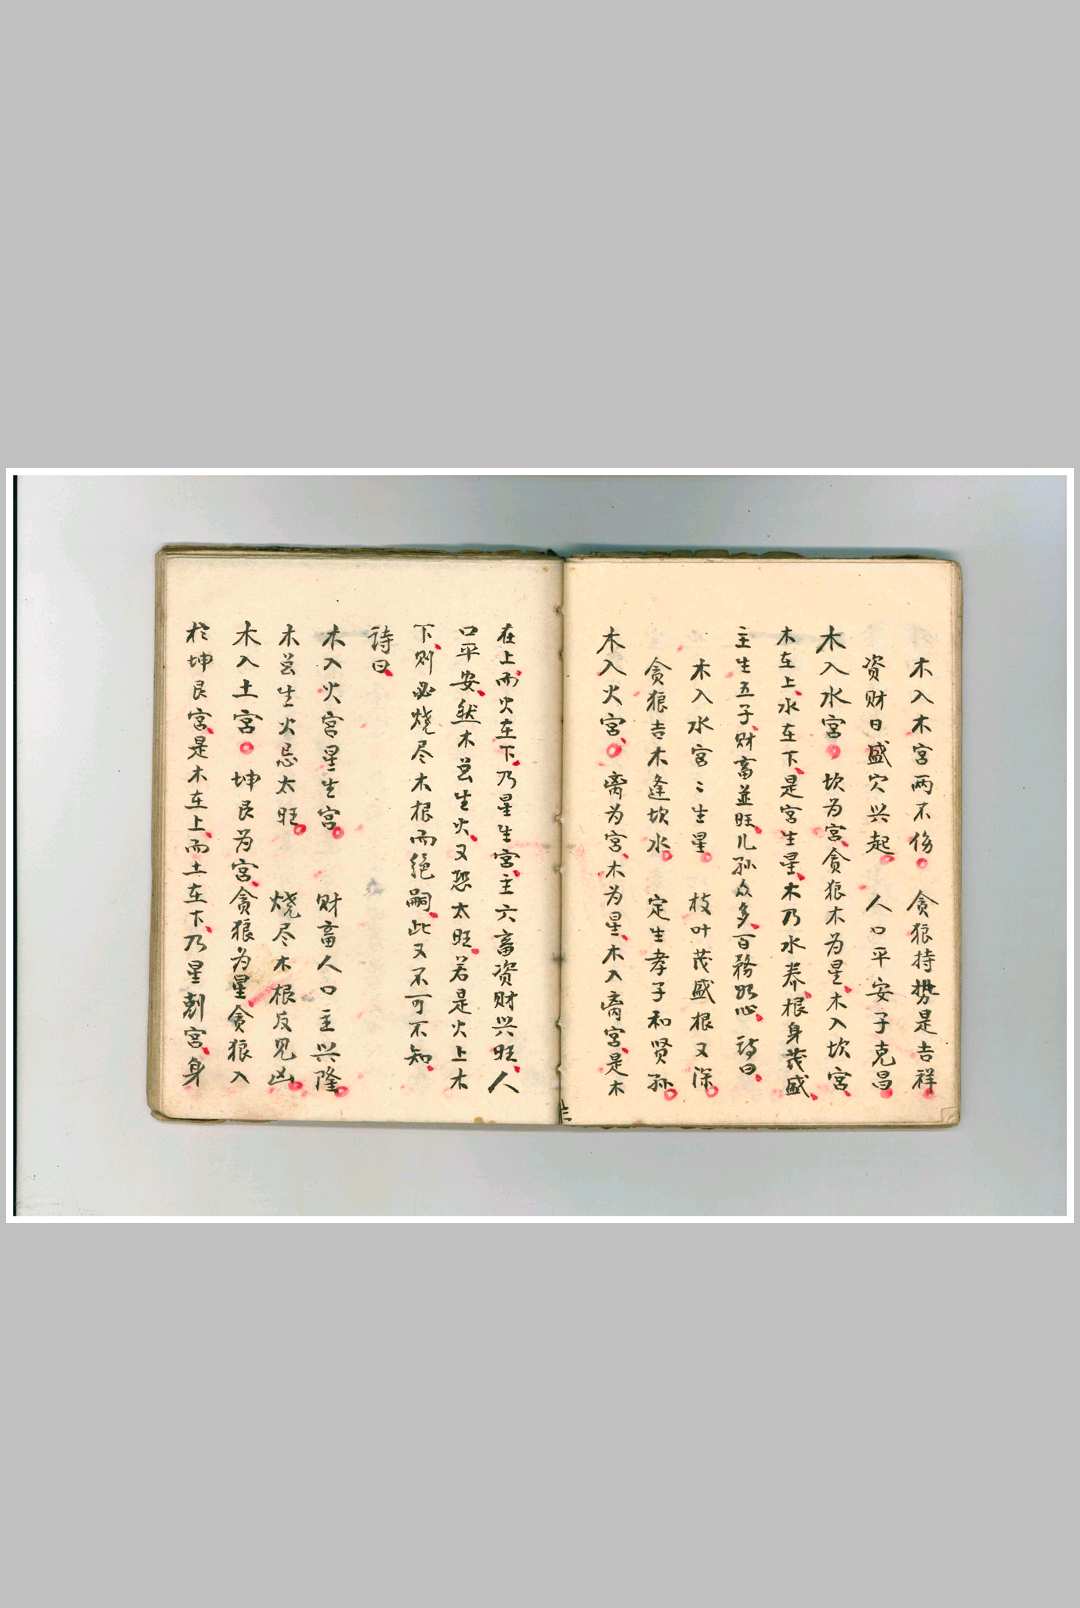 木入木宫两不伤。贪狼持势是吉祥。
资财日盛穴兴起。人口平安子克昌。
木入水宫。坎为宫、贪狼木为星、木入坎宫、
木在上、水在下、是宫生星、木乃水养、根身茂盛、
主生五子、财畜並旺、儿孙众多、百務如心、詩曰、
木入水宫〻生星。枝叶茂盛根又深。
贪狼吉木逢坎水。定生孝子和贤孙。
木入火宫。离为宫、木为星、木入离宫、是木
在上、而火在下、乃星生宫、主六畜资财兴旺、人
口平安、然木虽生火、又恐太旺、若是火上木
下、则必烧尽木根而绝嗣、此又不可不知、
詩曰、
木入火宫星生宫。财畜人口主兴隆。
木虽生火忌太旺。烧尽木根反见凶。
木入土宫。坤艮为宫、贪狼为星、贪狼入
於坤艮宫、是木在上、而土在下、乃星剋宫、身
三